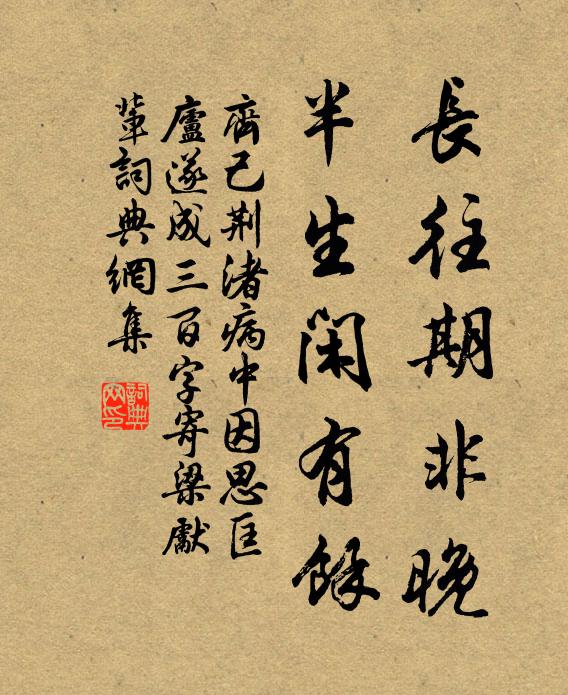 長往期非晚
半生閑有餘
齊己荆渚病中因思匡
廬遂成三百字寄梁獻
輩詞典網集
詞典
网印